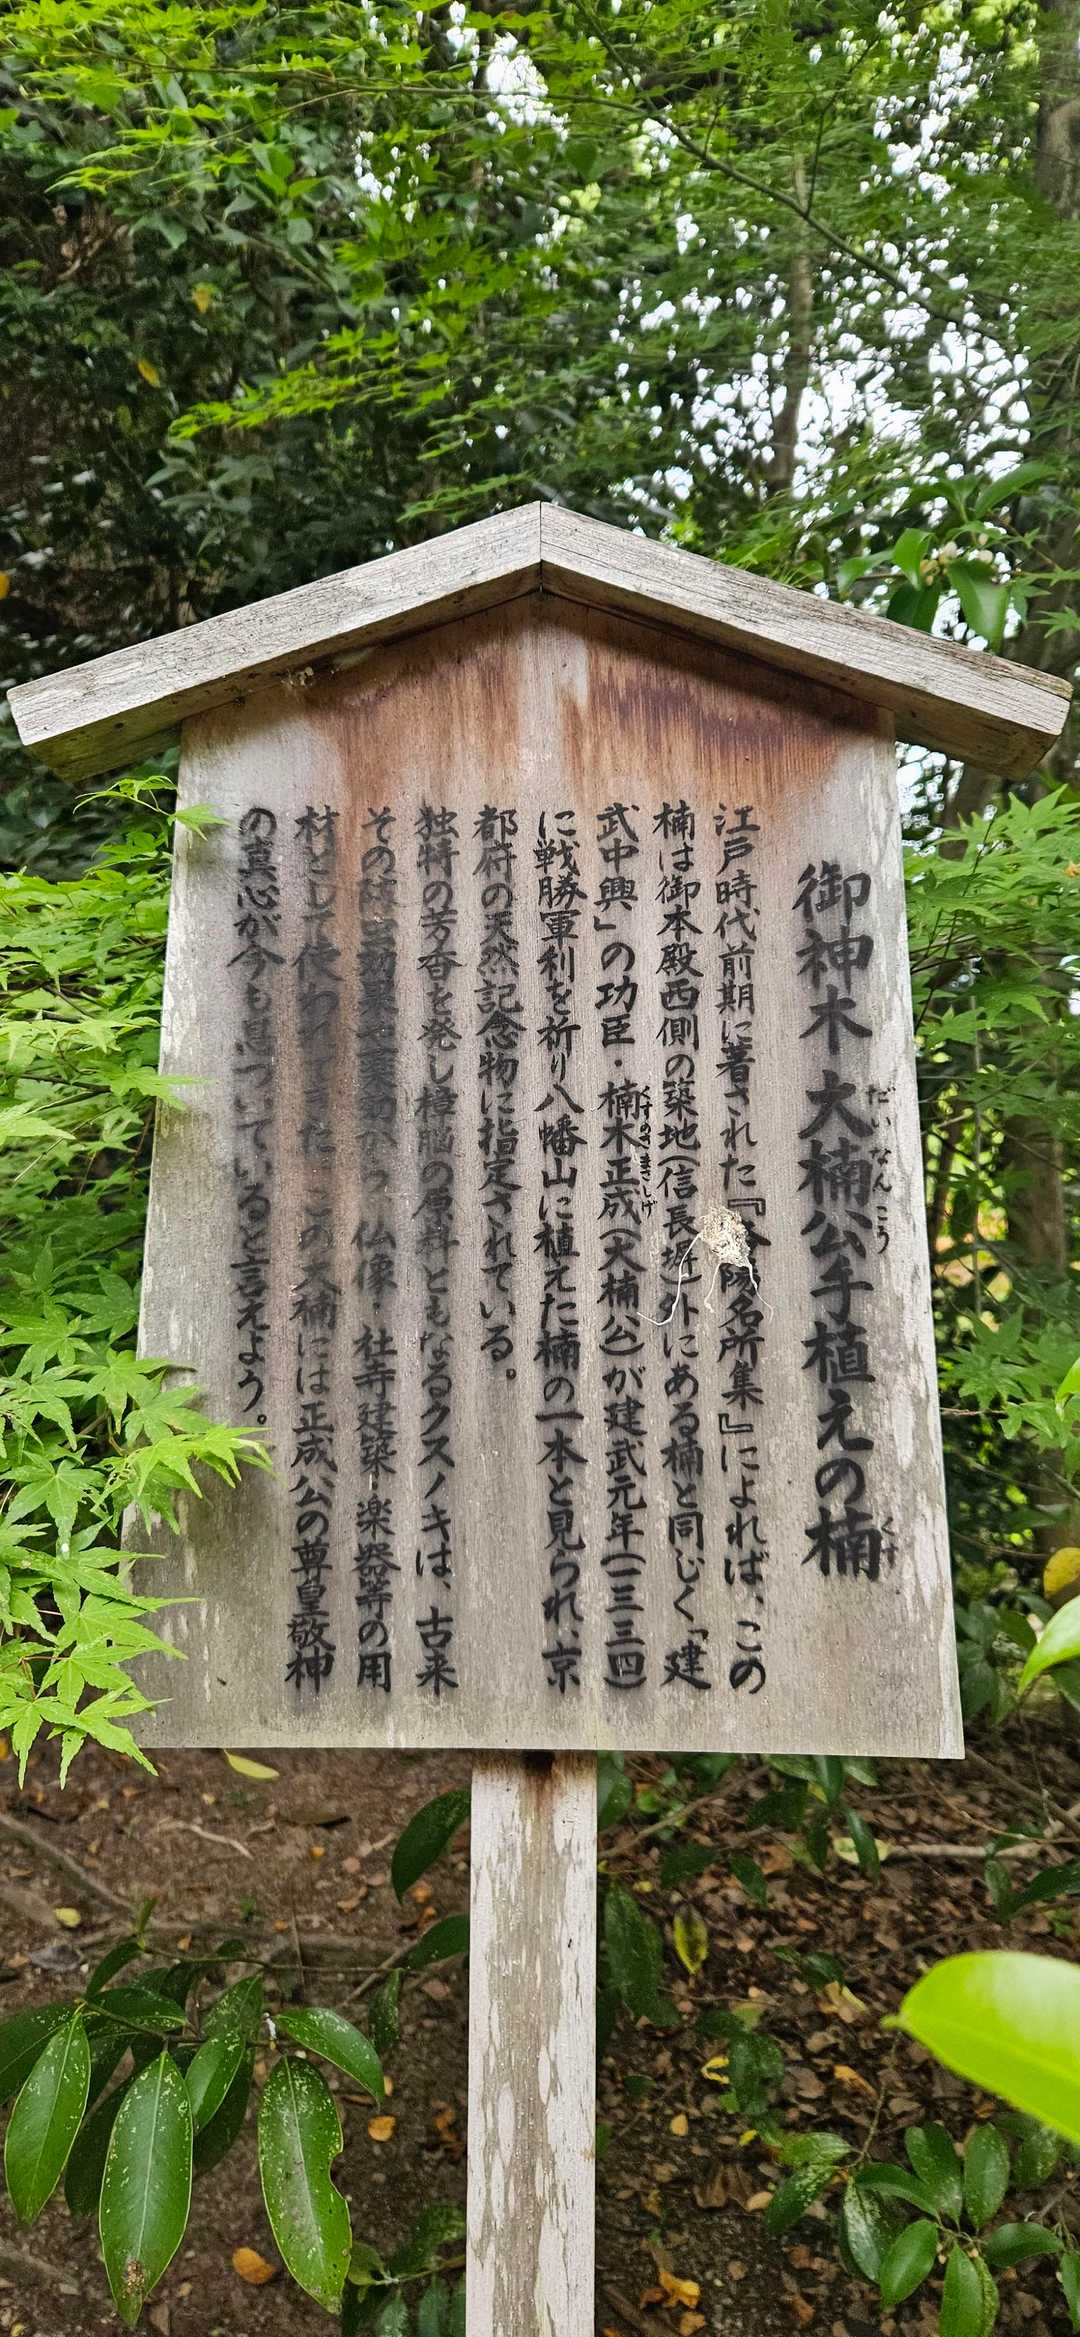 御神木 大楠公手植えの楠
だいなんこう
くす
江戸時代前期に著された『陽名所集』によれば、この
楠は御本殿西側の築地(信長塀)外にある楠と同じく「建
武中興」の功臣・楠木正成(大楠公)が建武元年(一三三四)
くすのきまさしげ
に戦勝軍利を祈り八幡山に植えた楠の一本と見られ、京
都府の天然記念物に指定されている。
独特の芳香を発し樟脳の原料ともなるクスノキは、古来
その防虫効果や薬効から、仏像・社寺建築・楽器等の用
材として使われてきた。この大楠には正成公の尊皇敬神
の真心が今も息づいていると言えよう。